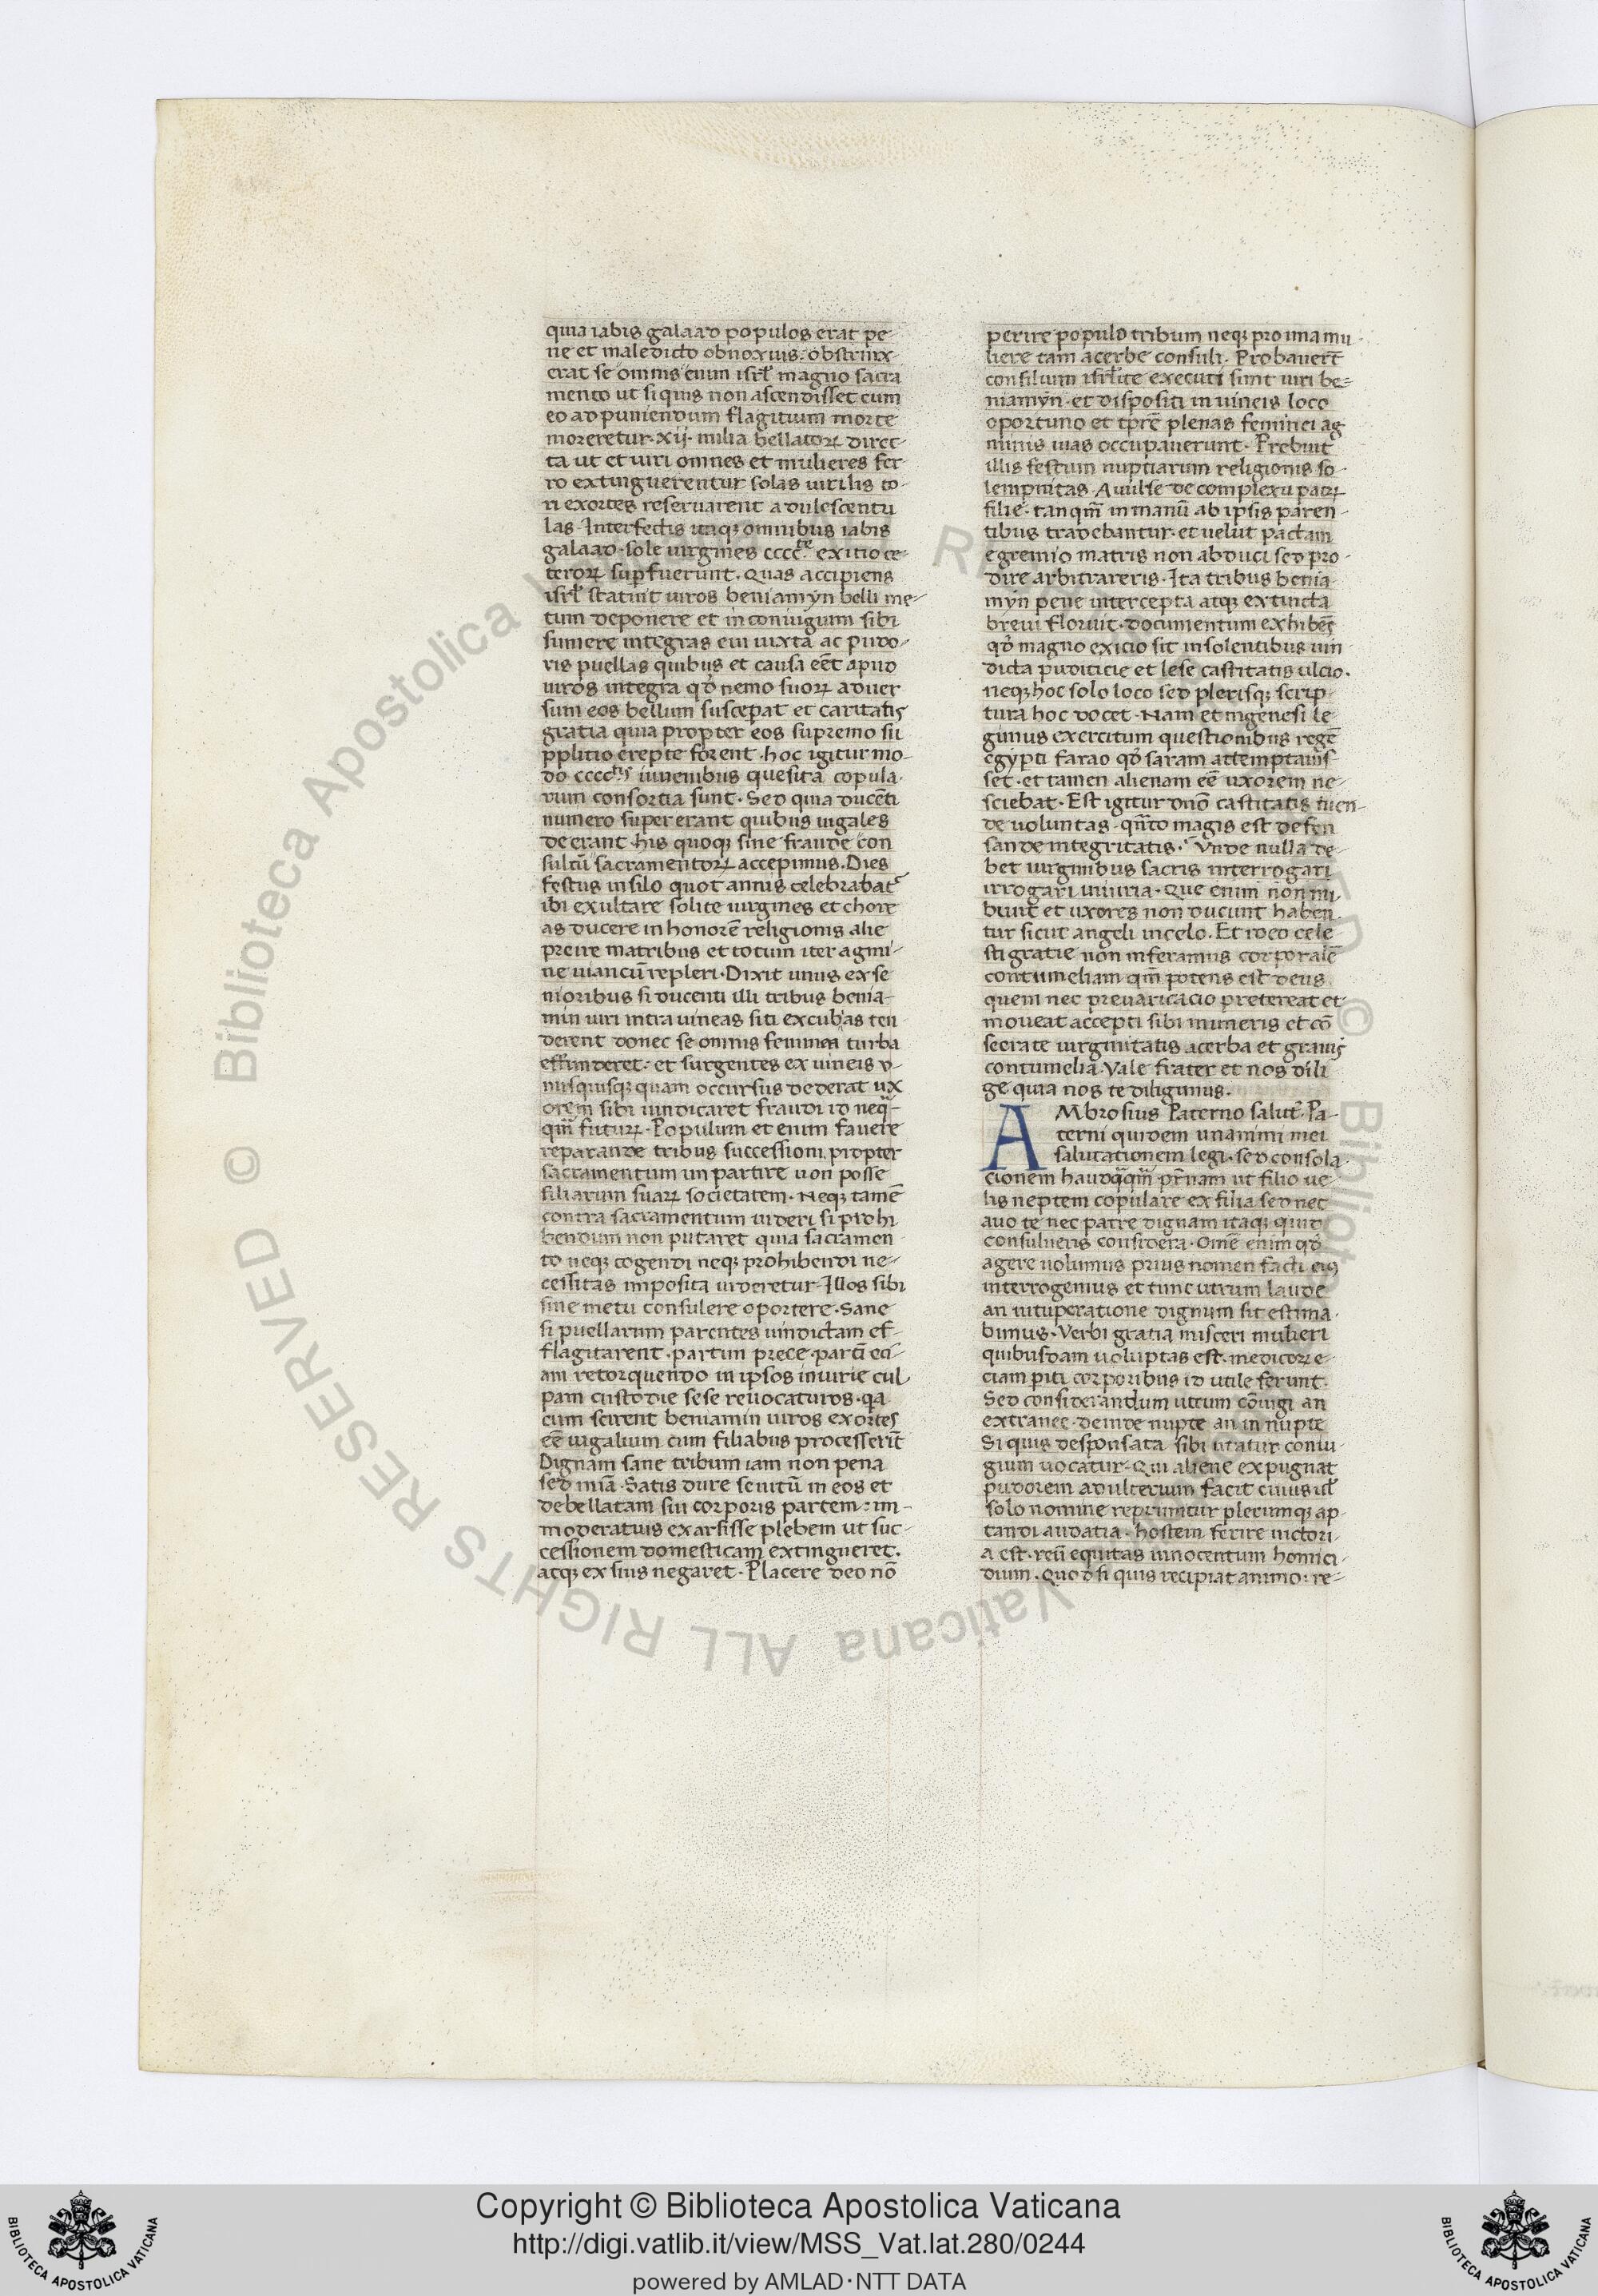 quia iabis galaad populos erat pe-
ne et maledicto obnoxius: obstrinx-
erat se omnis enim isrl̃ magno sacra
mento ut si quis non ascendisset cum
eo ad puniendum flagitium morte
moreretur. xij. milia bellatoꝝ direc-
ta ut et uiri omnes et mulieres fer
ro extinguerentur solas uirilis to-
ri exortes reseruarent adulescentu
las. Interfectis itaqꝫ omnibus iabis
galaad. sole uirgines cccc.te exitio ce-
teroꝝ suꝑfuerunt. quas accipiens
isrl̃ statuit uiros beniamyn belli me-
tum deponere et in coniugium sibi
sumere integras eui iuxta ac pudo-
ris puellas quibus et causa eēt apud
uiros integra qđ nemo suoꝝ aduer
sum eos bellum suscepat et caritatis
gratia quia propter eos supremo su
pplitio erepte forent. hoc igitur mo-
do cccctis iuuenibus quesita copula.
rum consortia sunt. Sed quia ducēti
numero super erant quibus iugales
de erant his quoqꝫ sine fraude con
sultū sacramentoꝝ accepimus. Dies
festus in silo quot annis celebrabat᷑
ibi exultare solite uirgines et chore
as ducere in honorē religionis alie
preire matribus et totum iter agmi-
ne uiancū repleri. Dixit unus ex se
nioribus si ducenti illi tribus benia-
min uiri intra uineas siti excubas ten
derent donec se omnis feminea turba
effunderet. et surgentes ex uineis v-
nusquisqꝫ quam occursus dederat ux
orem sibi uindicaret fraudi id neq̃-
qm̃ futuꝝ. Populum et enim fauere
reparande tribus successioni propter
sacramentum im partire non posse
filiarum suaꝝ societatem. Neqꝫ tamē
contra sacramentum uideri si prohi
bendum non putaret quia sacramen
to neqꝫ cogendi neqꝫ prohibendi ne-
cessitas imposita uideretur. Illos sibi
sine metu consulere oportere. Sane
si puellarum parentes uindictam ef-
flagitarent. partim prece. partī eci-
am retorquendo in ipsos iniurie cul
pam custodie sese reuocaturos. qa
cum scirent beniamin uiros exortes
eē iugalium cum filiabus processerīt
Dignam sane tribum iam non pena
sed mīa. Satis dure seuitū in eos et
debellatam sui corporis partem: im-
moderatius exarsisse plebem ut suc-
cessionem domesticam extingueret.
atqꝫ ex siuis negaret. Placere deo nō
perire populo tribum neqꝫ pro una mu
liere tam acerbe consuli. Probauerīt
consilium isrl̃ite executi sunt uiri be-
niamyn. et dispositi in uineis loco
oportuno et tp̃re plenas feminei ag
minis uias occupauerunt. Prebuit
illis festum nuptiarum religionis so
lempnitas. Auulse de complexu patꝝ
filie. tanqm̃ in manū ab ipsis paren-
tibus tradebantur. et velut pactam
e gremio matris non abduci sed pro-
dire arbitrareris. Ita tribus benia
myn pene intercepta atqꝫ extincta
breui floruit. documentum exhibēs
qđ magno exicio sit insolentibus uin
dicta pudicicie et lese castitatis ulcio.
neqꝫ hoc solo loco sed plerisqꝫ scrip-
tura hoc docet. Nam et in genesi le
gimus exercitum questionibus regē
egypti farao qđ saram attemptauis-
set. et tamen alienam eē uxorem ne-
sciebat. Est igitur dn̄o castitatis tuen-
de uoluntas. qn̄to magis est defen
sande integritatis. Vnde nulla de-
bet uirginibus sacris interrogari
irrogari iniuria. Que enim non nu
bunt et uxores non ducunt haben
tur sicut angeli in celo. Et ideo cele
sti gratie non inferamus corporalē
contumeliam qm̃ potens est deus
quem nec preuaricacio pretereat et
moueat accepti sibi muneris et cō
secrate uirginitatis acerba et grauis
contumelia. Vale frater et nos dili
ge quia nos te diligimus.
AMbrosius Paterno salut᷑. Pa-
terni quidem unanimi mei
salutationem legi. sed consola.
cionem haudq̃qm̃ pr̃nam ut filio ue-
lis neptem copulare ex filia sed nec
auo te nec patre dignam itaqꝫ quid
consulueris considera. Omē enim qđ
agere uolumus prius nomen facti eiꝯ
interrogemus et tunc utrum laude
an uituperatione dignum sit estima.
bimus. Verbi gratia misceri mulieri
quibusdam uoluptas est. medicoꝝ e-
ciam piti corporibus id utile ferunt.
Sed considerandum utrum cōiugi an
extranee. deinde nupte an in nupte
Si quis desponsata sibi utatur coniu-
gium uocatur. Qui aliene expugnat
pudorem adulterium facit cuius ul̃
solo nomine reprimitur plerumqꝫ ap-
tandi audatia. hostem ferire uictori
a est. reū equitas innocentum homici-
dium. Quod si quis recipiat animo: re-
Copyright © Biblioteca Apostolica Vaticana
http://digi.vatlib.it/view/MSS_Vat.lat.280/0244
powered by AMLAD·NTT DATA